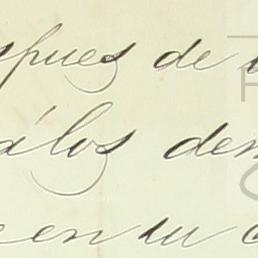 spues de
álos dem
en su